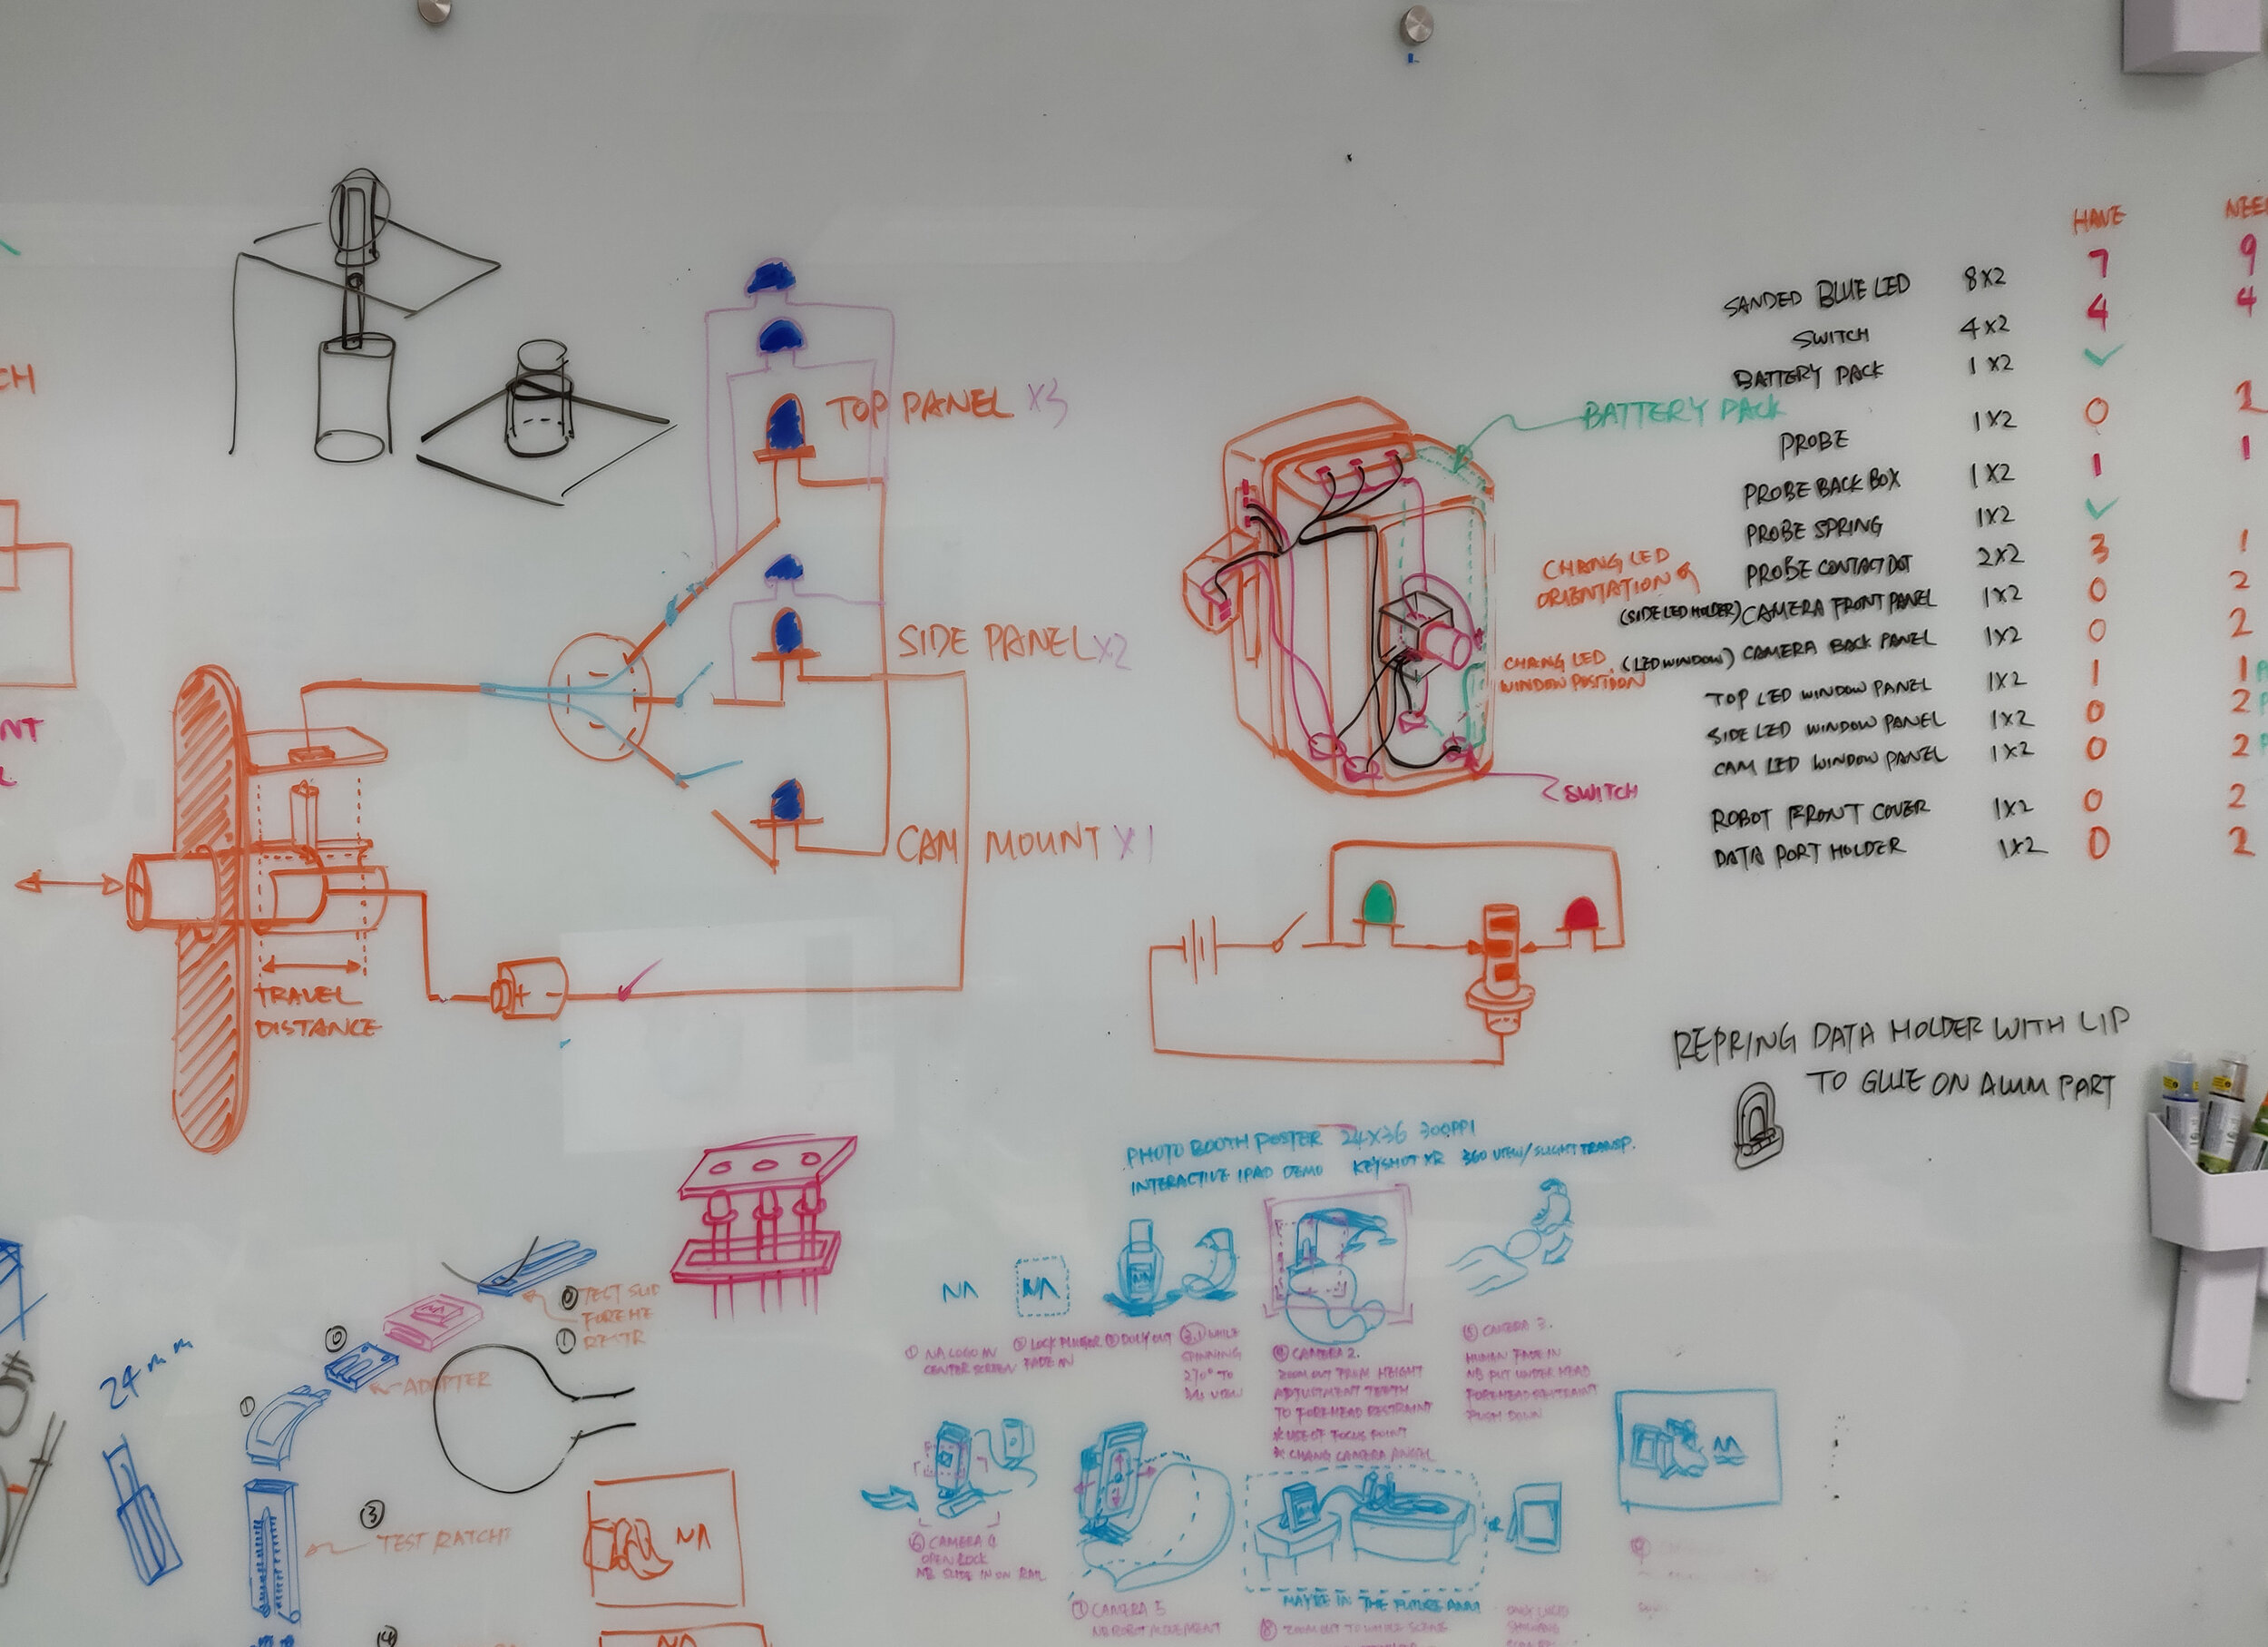 HAVE NEE
SANDED BLUE LED 8X2 7 9
SWITCH 4X2 4 4
BATTERY PACK 1X2 ✓
PROBE 1X2 0 2
PROBE BACK BOX 1X2 1 1
PROBE SPRING 1X2 ✓
PROBE CONTACT DOT 2X2 3 1
(SIDE LED HOLDER) CAMERA FRONT PANEL 1X2 0 2
(LED WINDOW) CAMERA BACK PANEL 1X2 0 2
TOP LED WINDOW PANEL 1X2 1 1
SIDE LED WINDOW PANEL 1X2 0 2
CAM LED WINDOW PANEL 1X2 0 2
ROBOT FRONT COVER 1X2 0 2
DATA PORT HOLDER 1X2 0 2
CHANG LED
ORIENTATION
CHANG LED
WINDOW POSITION
BATTERY PACK
SWITCH
CH
NT
TOP PANEL X3
SIDE PANEL X2
CAM MOUNT X1
+ -
TRAVEL
DISTANCE
REPRING DATA HOLDER WITH LIP
TO GLUE ON ALUM PART
PHOTO BOOTH POSTER 24X36 300PPI
INTERACTIVE IPAD DEMO KEYSHOT XR 360 VIEW/SLIGHT TRANSP.
NA
NA
① NA LOGO IN
CENTER SCREEN
② LOCK PLUNGER
FADE IN
③ DOLLY OUT
③.1 WHILE
SPINNING
270° TO
VIEW
④ CAMERA 2.
ZOOM OUT FROM HEIGHT
ADJUSTMENT TEETH
TO FOREHEAD RESTRAINT
* USE OF FOCUS POINT
* CHANG CAMERA ANGEL
⑤ CAMERA 3.
HUMAN FADE IN
NB PUT UNDER HEAD
FOREHEAD RESTRAINT
PUSH DOWN
⑥ CAMERA 4
OPEN LOCK
NB SLIDE IN ON RAIL
⑦ CAMERA 5
NB ROBOT MOVEMENT
MAYBE IN THE FUTURE
⑧ ZOOM OUT TO WHOLE SCENE
NA
24mm
0 TEST SLID
FOREHE
① RESTR
0
ADAPTER
①
③
TEST RATCHT
NA
④
NA